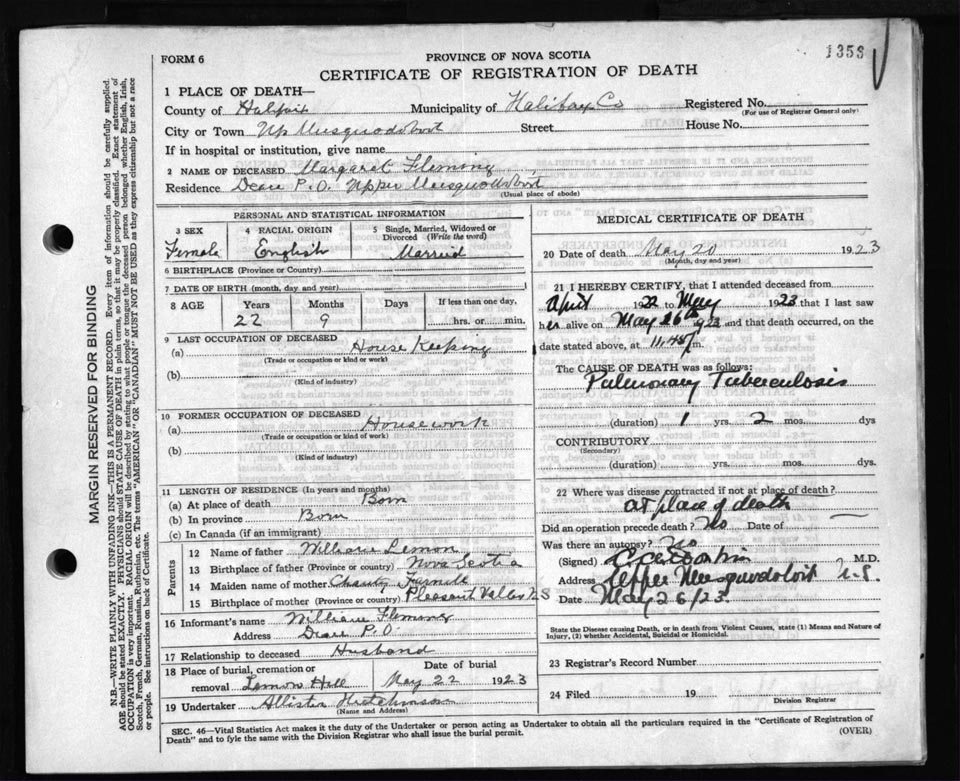 1353
FORM 6
PROVINCE OF NOVA SCOTIA
CERTIFICATE OF REGISTRATION OF DEATH
1 PLACE OF DEATH—
County of Halifax Municipality of Halifax Co Registered No.
(For use of Registrar General only)
City or Town Up Musquodoboit Street House No.
If in hospital or institution, give name
2 NAME OF DECEASED Margaret Fleming
Residence P.O. Upper Musquodoboit
(Usual place of abode)
PERSONAL AND STATISTICAL INFORMATION
3 SEX 4 RACIAL ORIGIN 5 Single, Married, Widowed or Divorced (Write the word)
Female English Married
6 BIRTHPLACE (Province or Country)
7 DATE OF BIRTH (month, day, and year)
8 AGE Years Months Days If less than one day,
22 9 hrs. or min.
9 LAST OCCUPATION OF DECEASED
(a) House Keeping
(Trade or occupation or kind or work)
(b)
(Kind of industry)
10 FORMER OCCUPATION OF DECEASED
(a) Housework
(Trade or occupation or kind of work)
(b)
(Kind of industry)
11 LENGTH OF RESIDENCE (In years and months)
(a) At place of death Born
(b) In province Born
(c) In Canada (if an immigrant)
Parents
12 Name of father William Lemon
13 Birthplace of father (Province or country) Nova Scotia
14 Maiden name of mother
15 Birthplace of mother (Province or country) Pleasant Valley N S
16 Informant's name William Fleming
Address P.O.
17 Relationship to deceased Husband
18 Place of burial, cremation or removal Lemon Hill
Date of burial May 22 1923
19 Undertaker Allister Hutchinson
(Name and Address)
MEDICAL CERTIFICATE OF DEATH
20 Date of death May 20 1923
(Month, day and year)
21 I HEREBY CERTIFY, that I attended deceased from
April 1922 to May 1923 that I last saw
her alive on May 26th 1923 and that death occurred, on the
date stated above, at 11.45 m.
The CAUSE OF DEATH was as follows:
Pulmonary Tuberculosis
(duration) 1 yrs. 2 mos. dys
CONTRIBUTORY
(Secondary)
(duration) yrs. mos. dys.
22 Where was disease contracted if not at place of death?
at place of death
Did an operation precede death? No Date of
Was there an autopsy? No
(Signed) M.D.
Address Upper Musquodoboit N.S.
Date May 26/23.
State the Disease causing Death, or in death from Violent Causes, state (1) Means and Nature of Injury, (2) whether Accidental, Suicidal or Homicidal.
23 Registrar's Record Number
24 Filed 19
Division Registrar
SEC. 46—Vital Statistics Act makes it the duty of the Undertaker or person acting as Undertaker to obtain all the particulars required in the "Certificate of Registration of
Death" and to fyle the same with the Division Registrar who shall issue the burial permit.
(OVER)
MARGIN RESERVED FOR BINDING
N.B.—WRITE PLAINLY WITH UNFADING INK—THIS IS A PERMANENT RECORD. Every item of information should be carefully supplied.
AGE should be stated EXACTLY. PHYSICIANS should STATE CAUSE OF DEATH in plain terms, so that it may be properly classified. Exact statement of
OCCUPATION is very important. RACIAL ORIGIN will be described by stating to what people or tongue the deceased person belonged whether English, Irish,
Scotch, French, German, Russian, Ruthenian, etc. The terms "AMERICAN" OR "CANADIAN" MUST NOT BE USED as they express citizenship but not a race
or people. See instructions on back of Certificate.